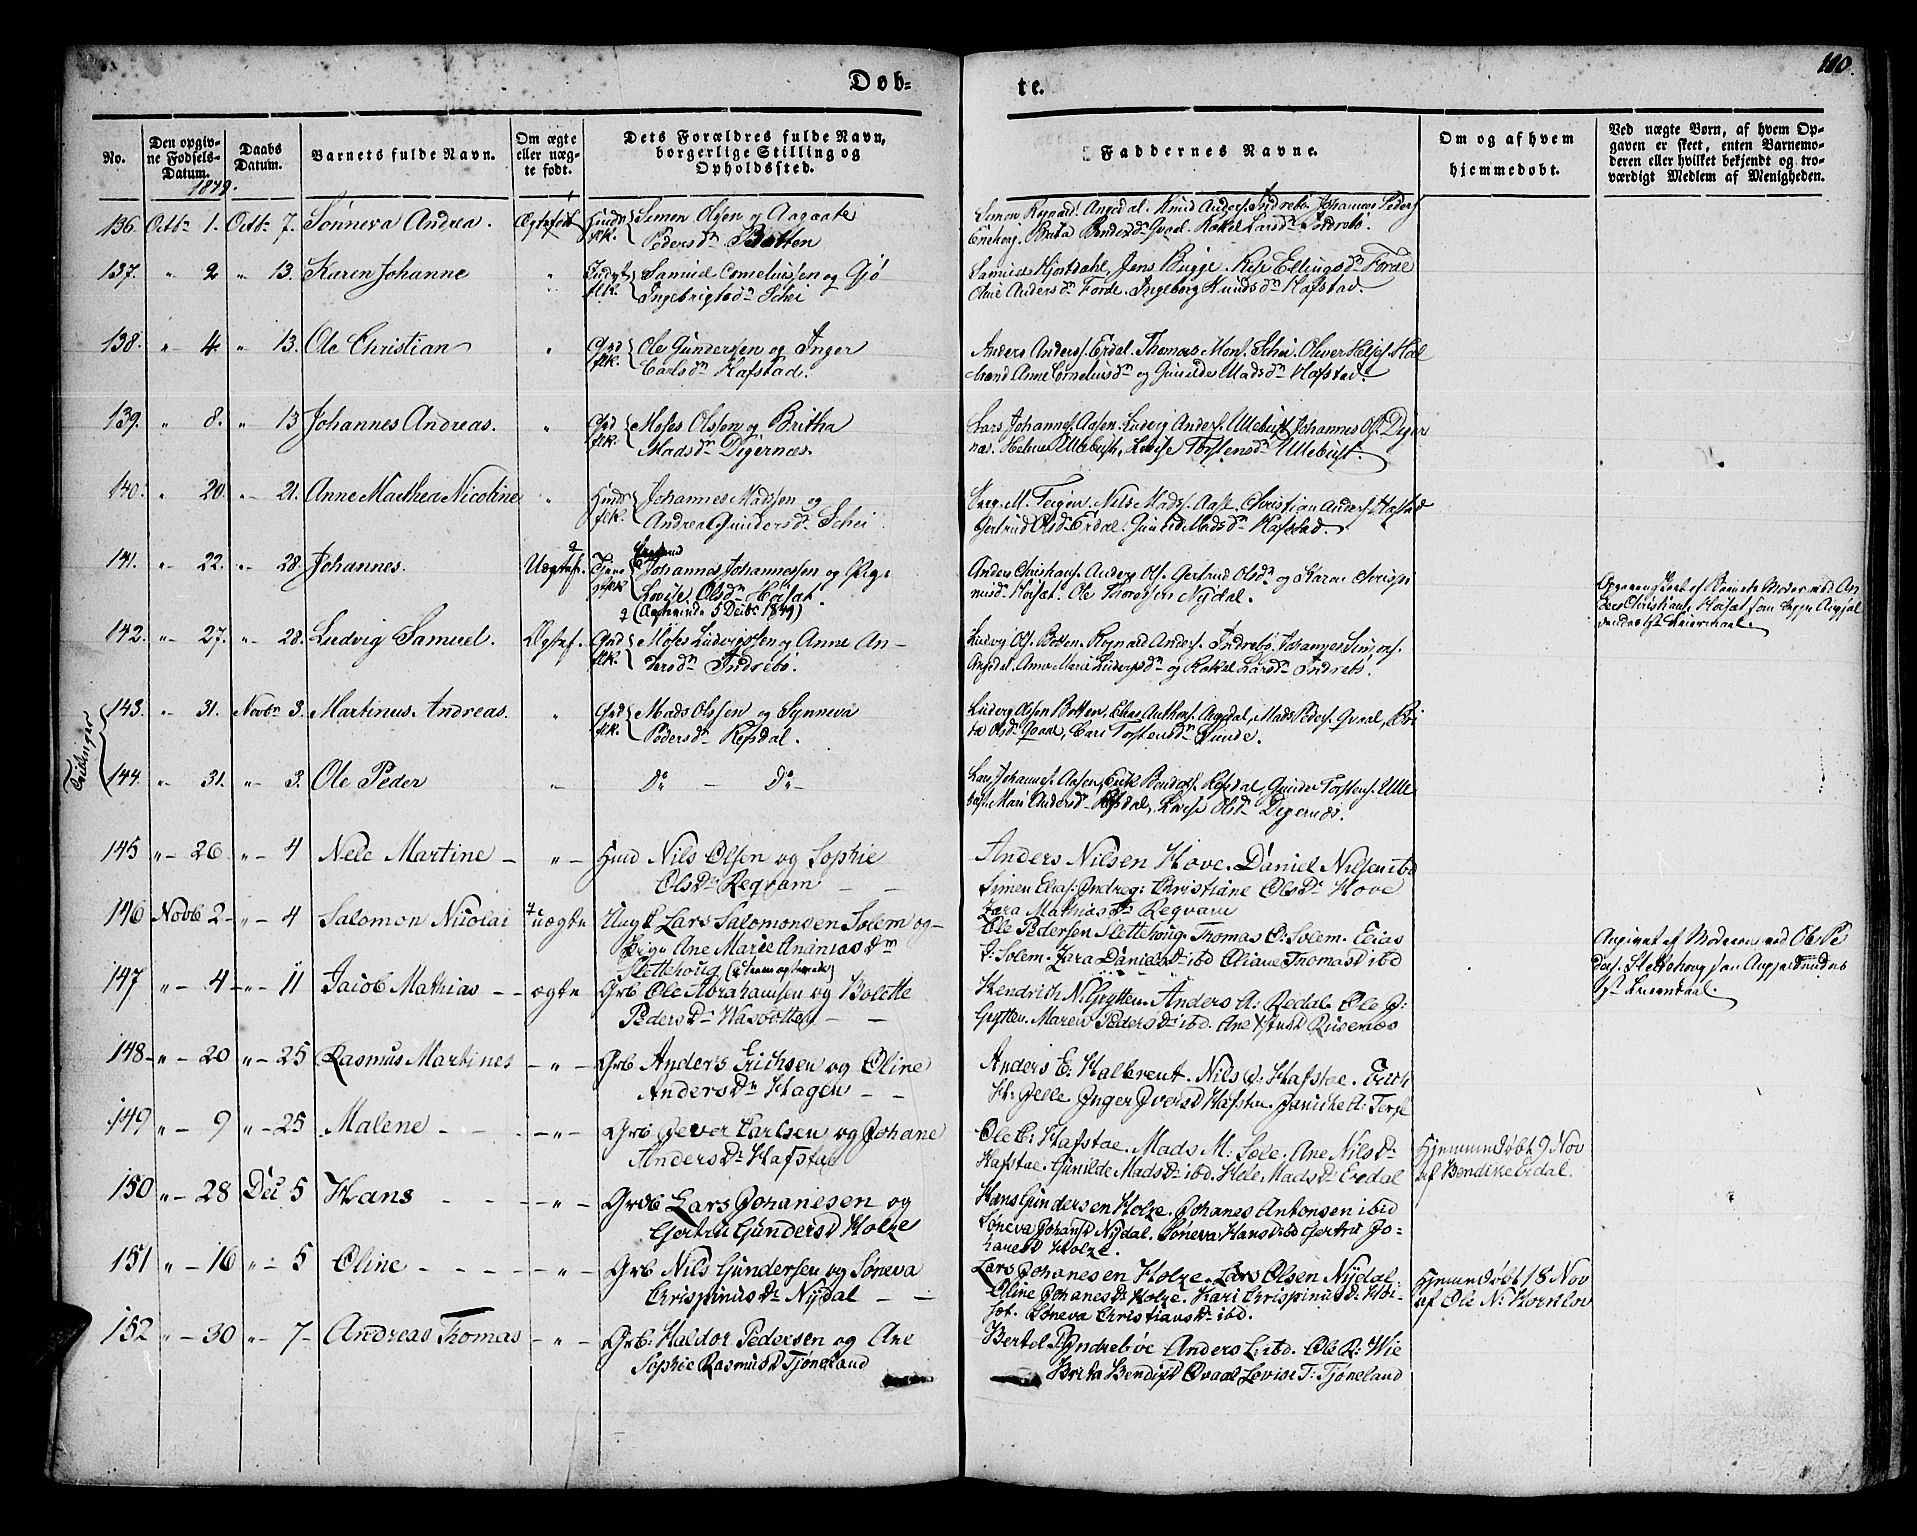 Døb=
te.
110.
No.
Den opgiv-
ne Fødsels-
Datum.
1849.
Daabs
Datum.
Barnets fulde Navn.
Om ægte
eller uæg-
te født.
Dets Forældres fulde Navn,
borgerlige Stilling og
Opholdssted.
Faddernes Navne.
Om og af hvem
hjemmedøbt.
Ved uægte Børn, af hvem Op-
gaven er skeet, enten Barnemo-
deren eller hvilket bekjendt og tro-
værdigt Medlem af Menigheden.
136. Octb. 1. Octb. 7. Sønneva Andrea. Ægtefød Simon Olsen og Aagaate
Pedersdr Botten
Simon Rognald. Angedal. Knud Anders. Indrebø. Johannes Peders.
Brita Bendixdr Qvaal. Rakel Larsdr Indrebø.
137. " 2 " 13. Karen Johanne " Samuel Corneliussen og Gjø
Ingebrigtsdr Schei
Samuel Hjortdahl, Jens Bugge. Elllingsdr Førde
Oline Andersdr Førde. Ingeborg Knudsdr Hafstad.
138. " 4. " 13. Ole Christian " Grd Ole Gundersen og Inger
flk. Carlsdr Hafstad.
Anders Anders. Erdal. Thomas Mons. Schei. Oliver Hal
brend Anne Cornelius dr og Gunilde Madsdr Hafstad.
139. " 8. " 13 Johannes Andreas. " Grd Moses Olsen og Britha
flk. Madsdr Digernæs.
Lars Johannes. Aasen. Ludvig Anders. Ullebust Johannes Ols. Diger
næs. Helene Ullebust, Lovise Torstensdr Ullebust.
140. " 20. " 21. Anne Marthea Nicoline " Huds Johannes Madsen og
flk. Andrea Gundersdr Schei
M. Teigen. Nils Mads. Aase. Christian Anders. Hafstad
Gertrud Olsdr Erdal. Gunild Madsdr Hafstad.
141. " 22. " 28. Johannes. Uægtef. Johannes Johannessen og Pige
Lovise Olsdr Høisæt.
Anders Christians. Anders Ols. Gertrud Olsdr og Karen Chrispi
nusdr Høisæt. Ole Thoresen Nydal.
Barnets Moder ved An
ders Christians. Høisæt som
142. " 27. " 28. Ludvig Samuel. Ægtef. Grd Moses Ludvigssen og Anne An-
flk. dersdr Indrebø.
Ludvig Ols. Botten. Rognald Anders. Indrebø. Johannes Simons.
Angedal. Anne Marie Ludvigsdr og Rakel Larsdr Indrebø.
Tvillinger
143. " 31. Novbr 3. Martinus Andreas. " Grd Mads Olssen og Synneva
flk. Pedersdr Refsdal.
Ludvig Olssen Botten, Elias Anthons. Angedal, Mads Peders. Qvaal, Bri
ta Olsdr Qvaal, Cari Torstensdr Sunde.
144. " 31. " 3. Ole Peder " Do — Do
Lars Johannes. Aasen, Erik Bendix. Refsdal, Gunder Torstens. Ulle
bust. Mari Andersdr Refsdal, Lovise Olsdr Digernæs.
145 " 26 " 4 Nele Martine " Hmd Nils Olsen og Sophie
OlsDr Reqvam
Anders Nilsen Hove. Daniel Nilsen ibd
Simen Elias. Indreg: Christiane OlsDr Hove
Zara MathiasDr Reqvam
146 Novb 2 " 4 Salomon Nicolai uægte Ungk Lars Salomonsen Solem og
Pige Ane Marie AnaniasDr
Slettehoug
Ole Pedersen Slettehoug. Thomas O: Solem. Elias
J: Solem. Zara DanielsDr ibd Eliane ThomasD ibd
Angivet af Moderen ved Ole Pe
ders. Slettehoug
147 " 4 " 11 Jacob Mathias ægte Grb Ole Abrahamsen og Bolette
PedersDr Wasbotten
Hendrich N. Grytten. Anders A: Redal. Ole J:
Grytten. Maren PedersDr ibd. Ane Risenæs
148 " 20 " 25 Rasmus Martines " Grb Anders Erichsen og Oline
AndersDr Hagen
Anders E: Halbrent. Nils Hafstae. Erich
H: Jelle Inger IversD Hafstae. Janicke A:
149 " 9 " 25 Malene " Grb Iever Carlsen og Johane
AndersDr Hafstae
Ole C: Hafstae. Mads M: Sole. Ane NilsDr
Hafstae. Gunilde MadsDr ibd. Hele MadsDr Erdal
Hjemmedøbt 9 Nov
af Bendike Erdal.
150 " 28 Dec 5 Hans " Grdb Lars Johanesen og
Gertru GundersD Holze
Hans Gundersen Holze. Johanes Antonsen ibid
Søneva JohansD Nydal. Søneva HansD ibd Gertru Jo-
hanesD Holze.
151 " 16 " 5 Oline " Grb Nils Gundersen og Søneva
ChrispinusDr Nydal
Lars Johanesen Holze. Lars Olsen Nydal.
Oline JohanesDr Holze. Kari ChrispinusDr Høi-
set. Søneva ChristiansDr ibd.
Hjemmedøbt 18 Nov
af Ole N: Horklov
152 " 30 " 7 Andreas Thomas " Grb: Haldor Pedersen og Ane
Sophie RasmusD Tjøneland
Bertel P: Indrebøe Anders L: ibd. Ole R: Wie
Brita Qvaal Lovise T: Tjøneland